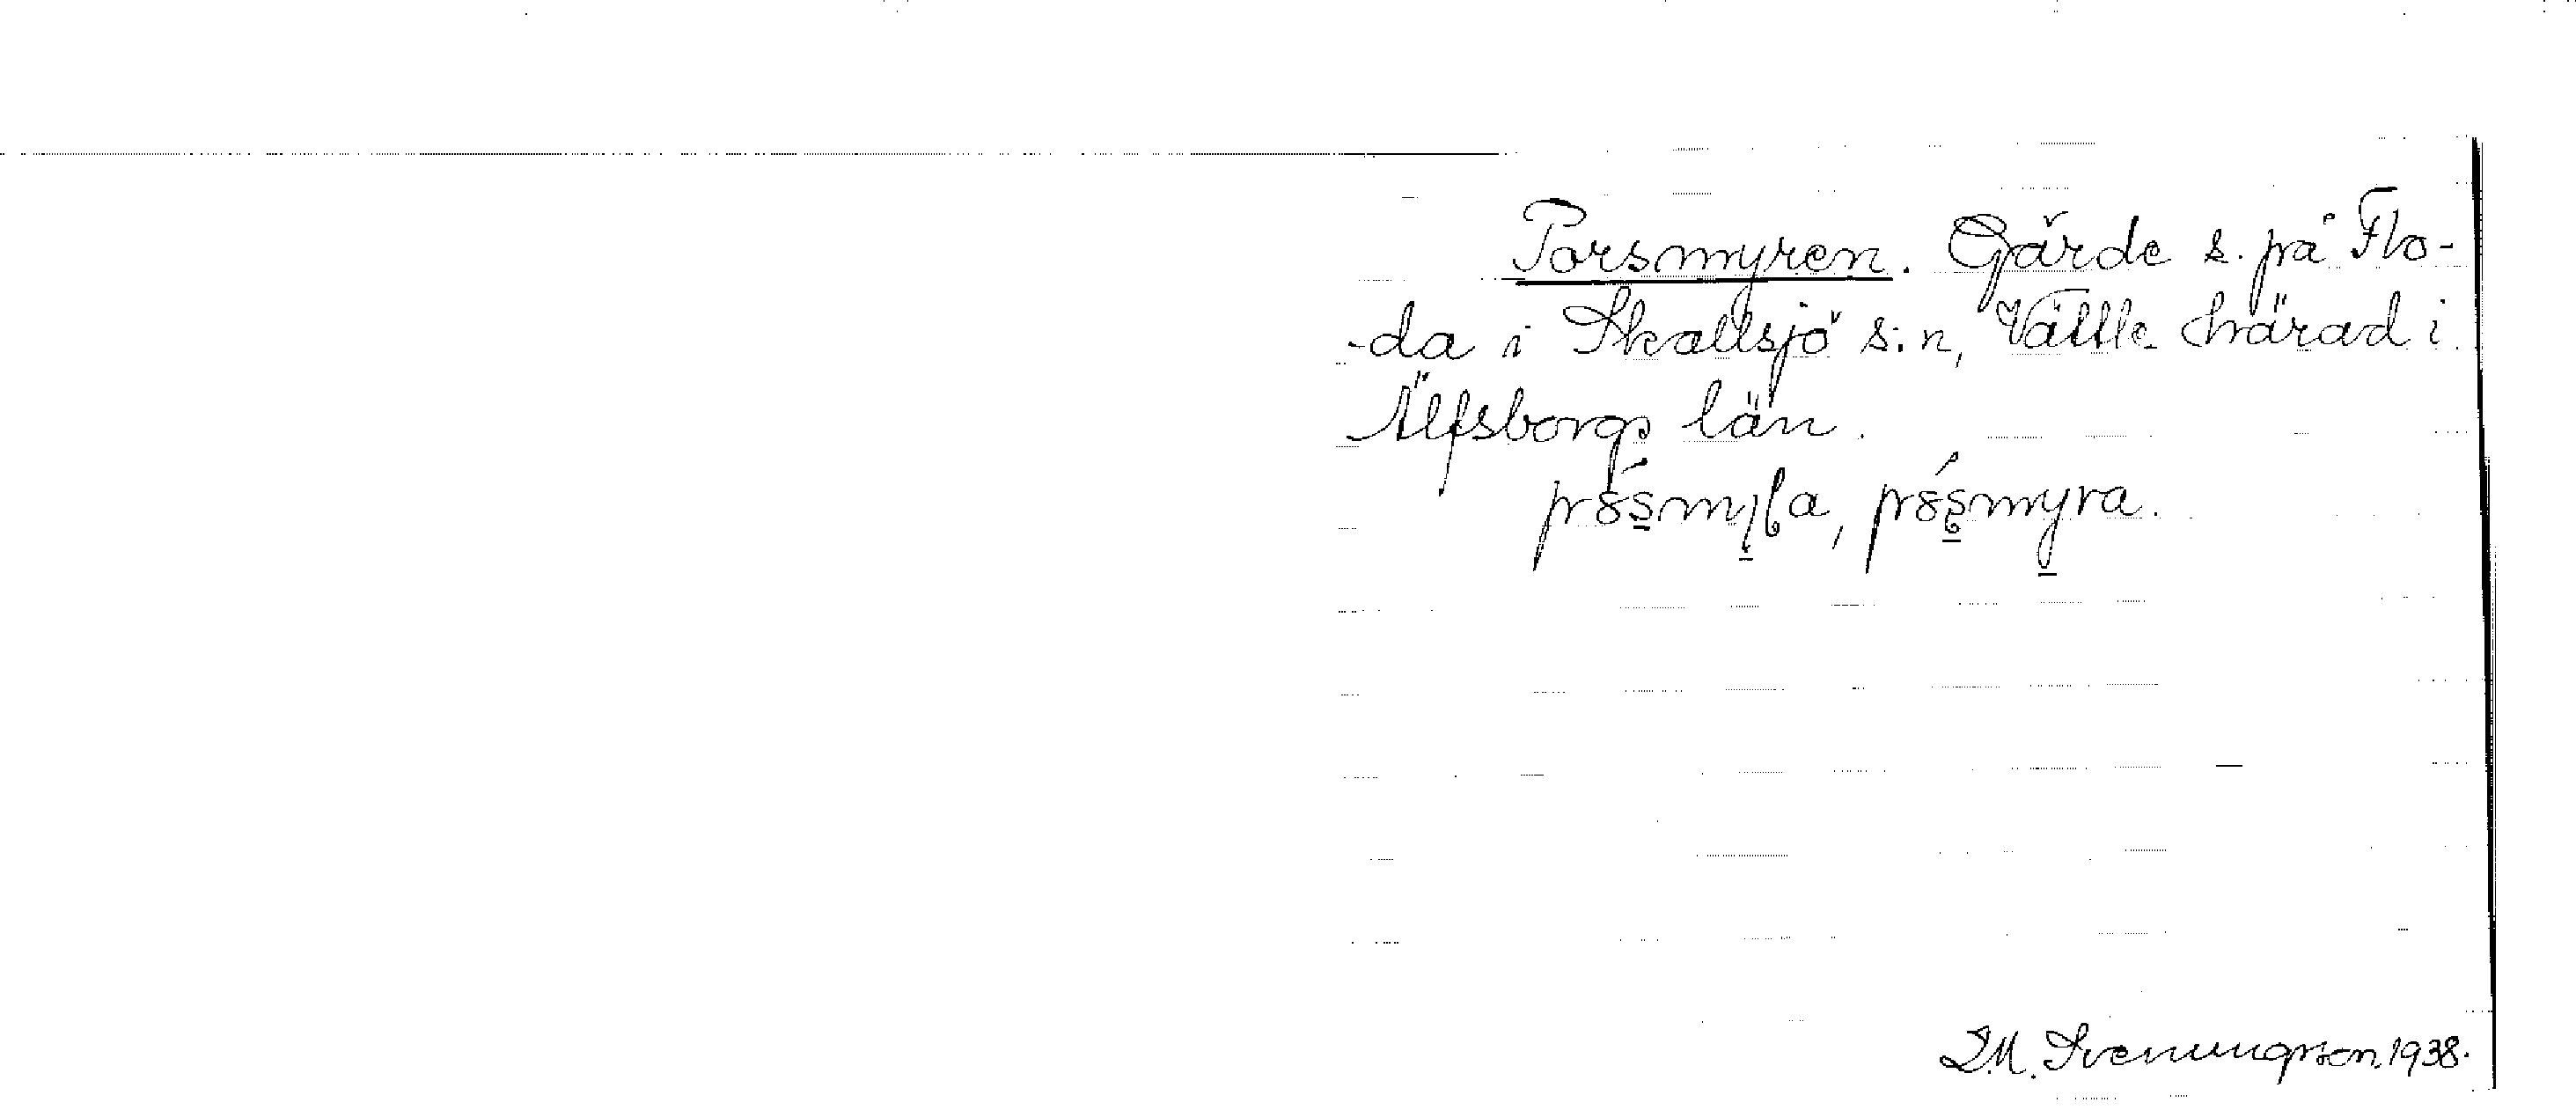 Porsmyren. Gärde s. på Flo-
-da i Skallsjö s:n, Vättle härad i
Älfsborgs län.
D.M. Svenungsson. 1938.